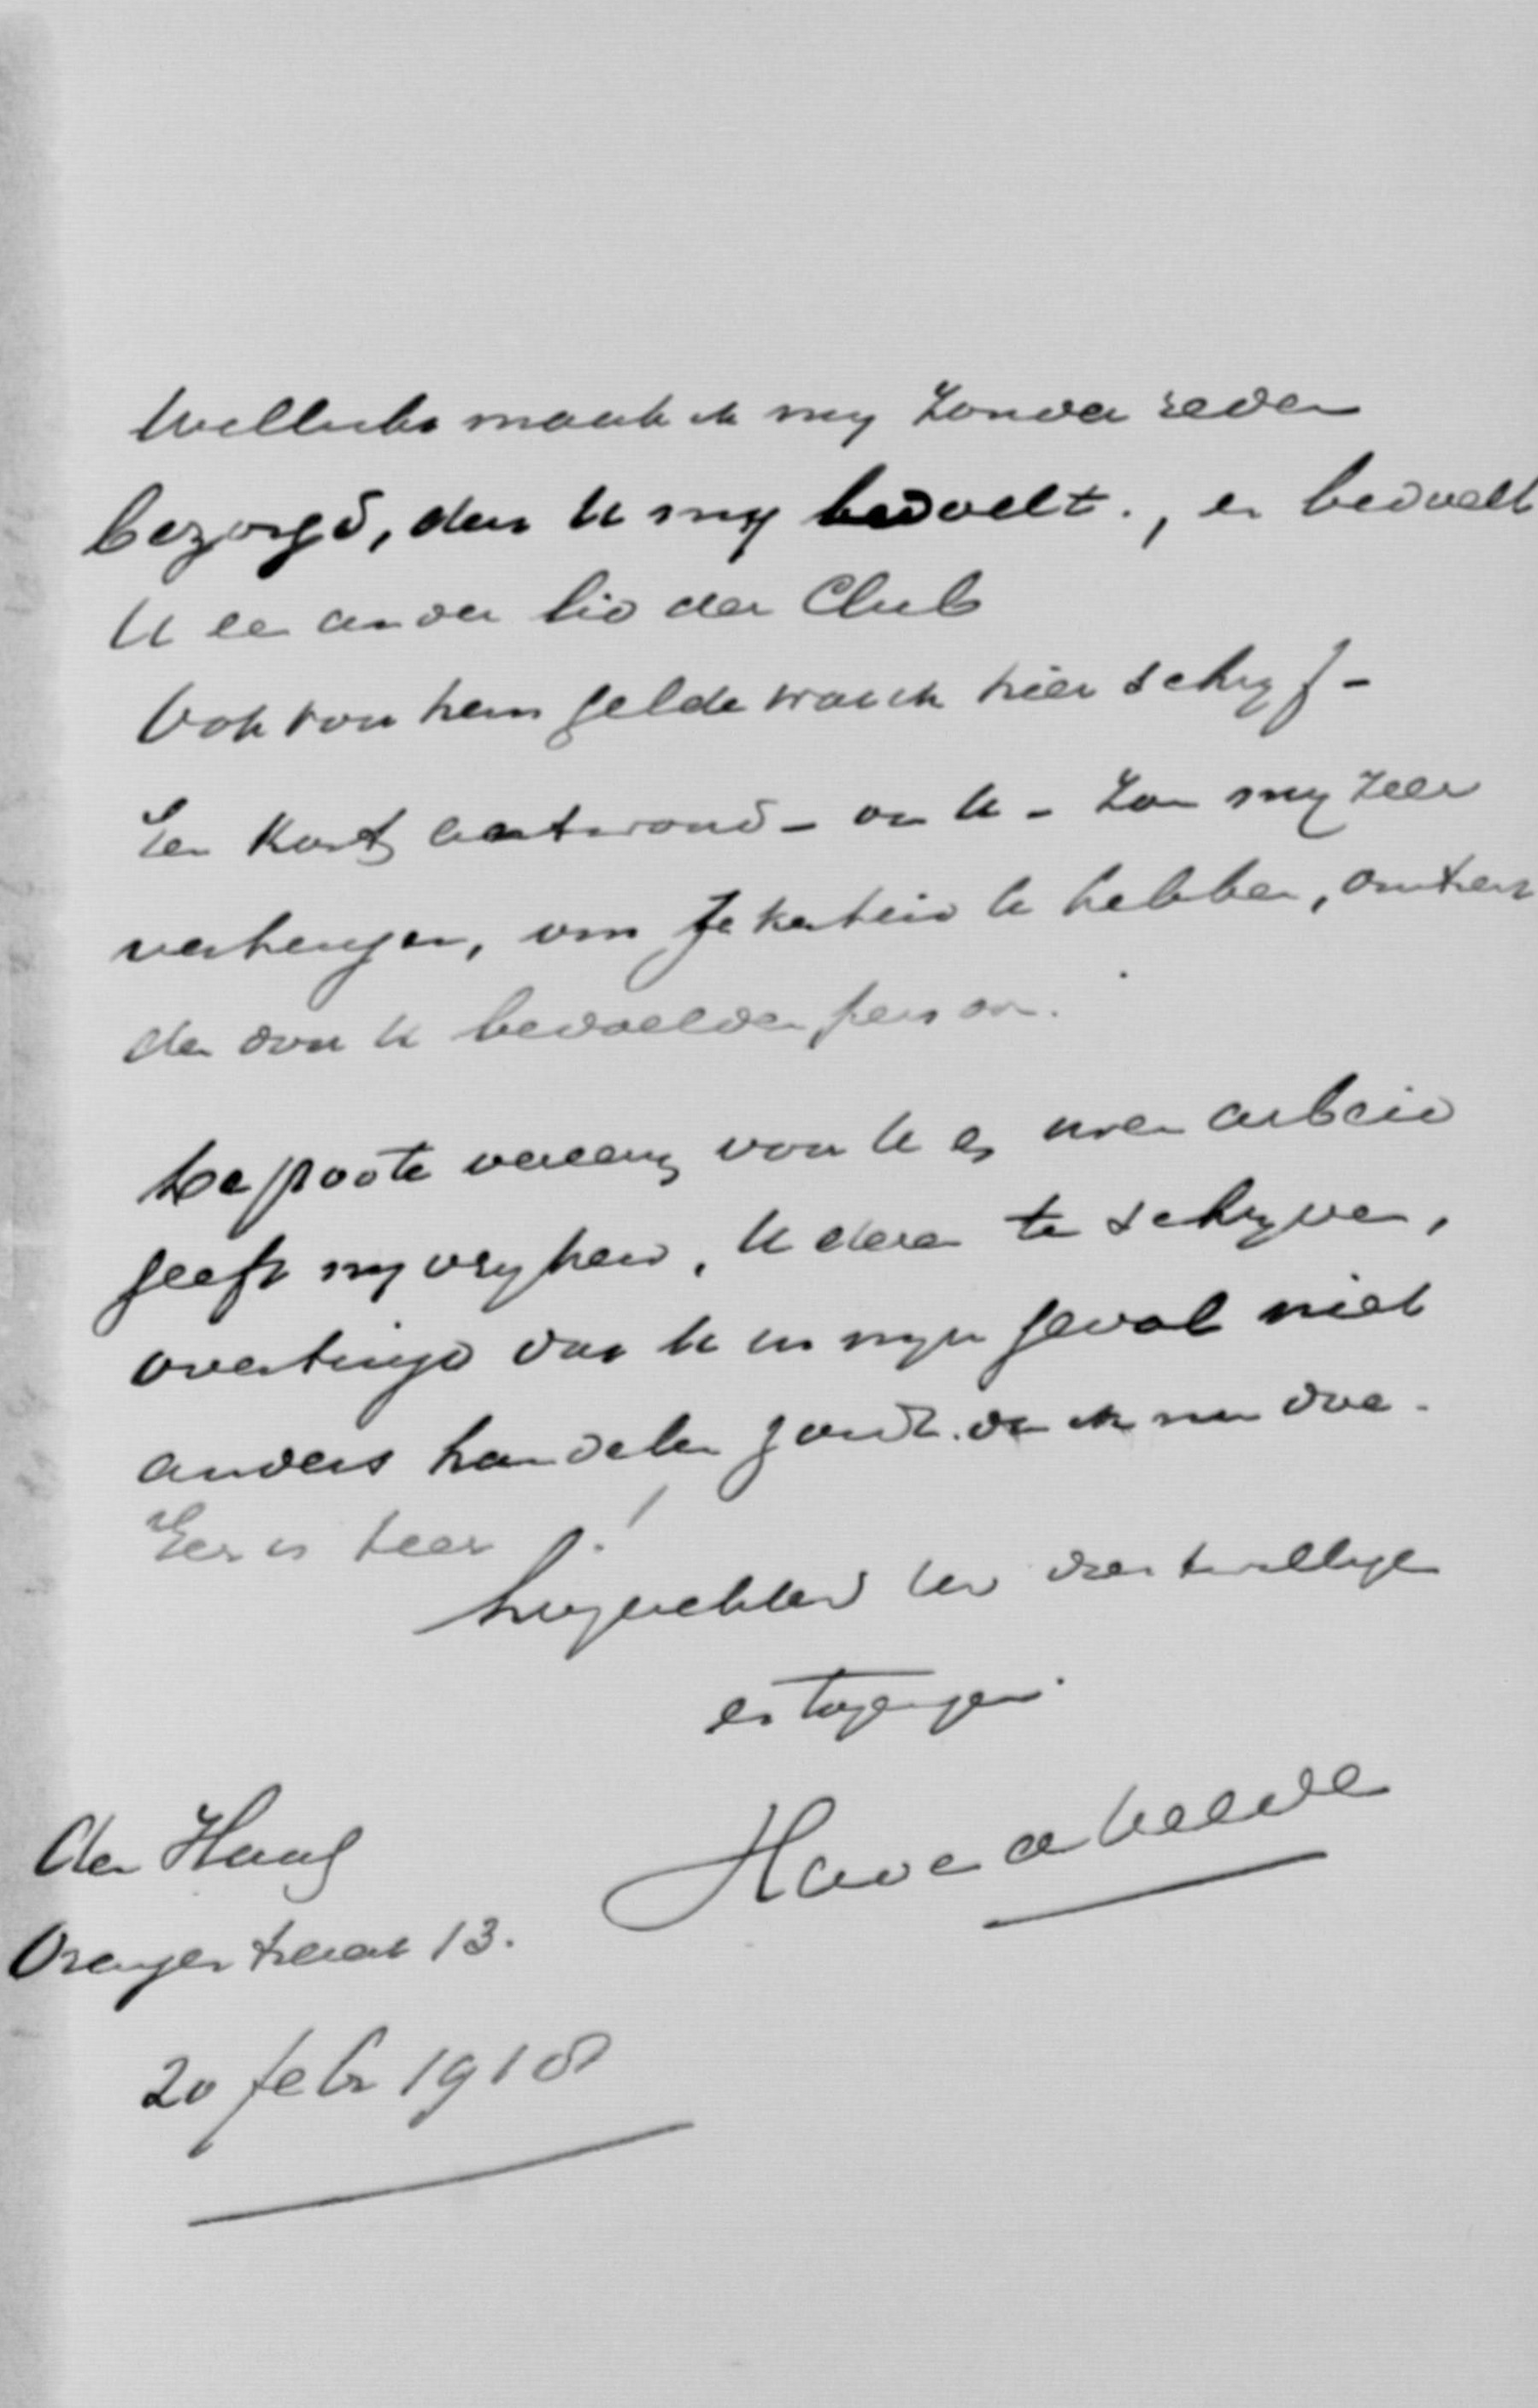 Wellicht maak ik my zonder reden
bezorgd, dan U my bedoelt., en bedoelt
U een ander lid der Club
Ook voor hem gelde wat ik hier schryf -
Een kort antwoord - van U - zou my zeer
verheugen, om zekerheid te hebben, omtrent
den door U bedoelden persoon.
De groote vereering voor U en uwen arbeid
geeft my vryheid, U dezen te schryven,
overtuigd dat U in myn geval niet
anders handelen zoudt. dan ik nu doe.
Zeer geerd heer !
hoogachtend Uw dienstwillige
en toegenegen.
H van der Velde
Den Haag
Oranjestraat 13.
20 febr 1918